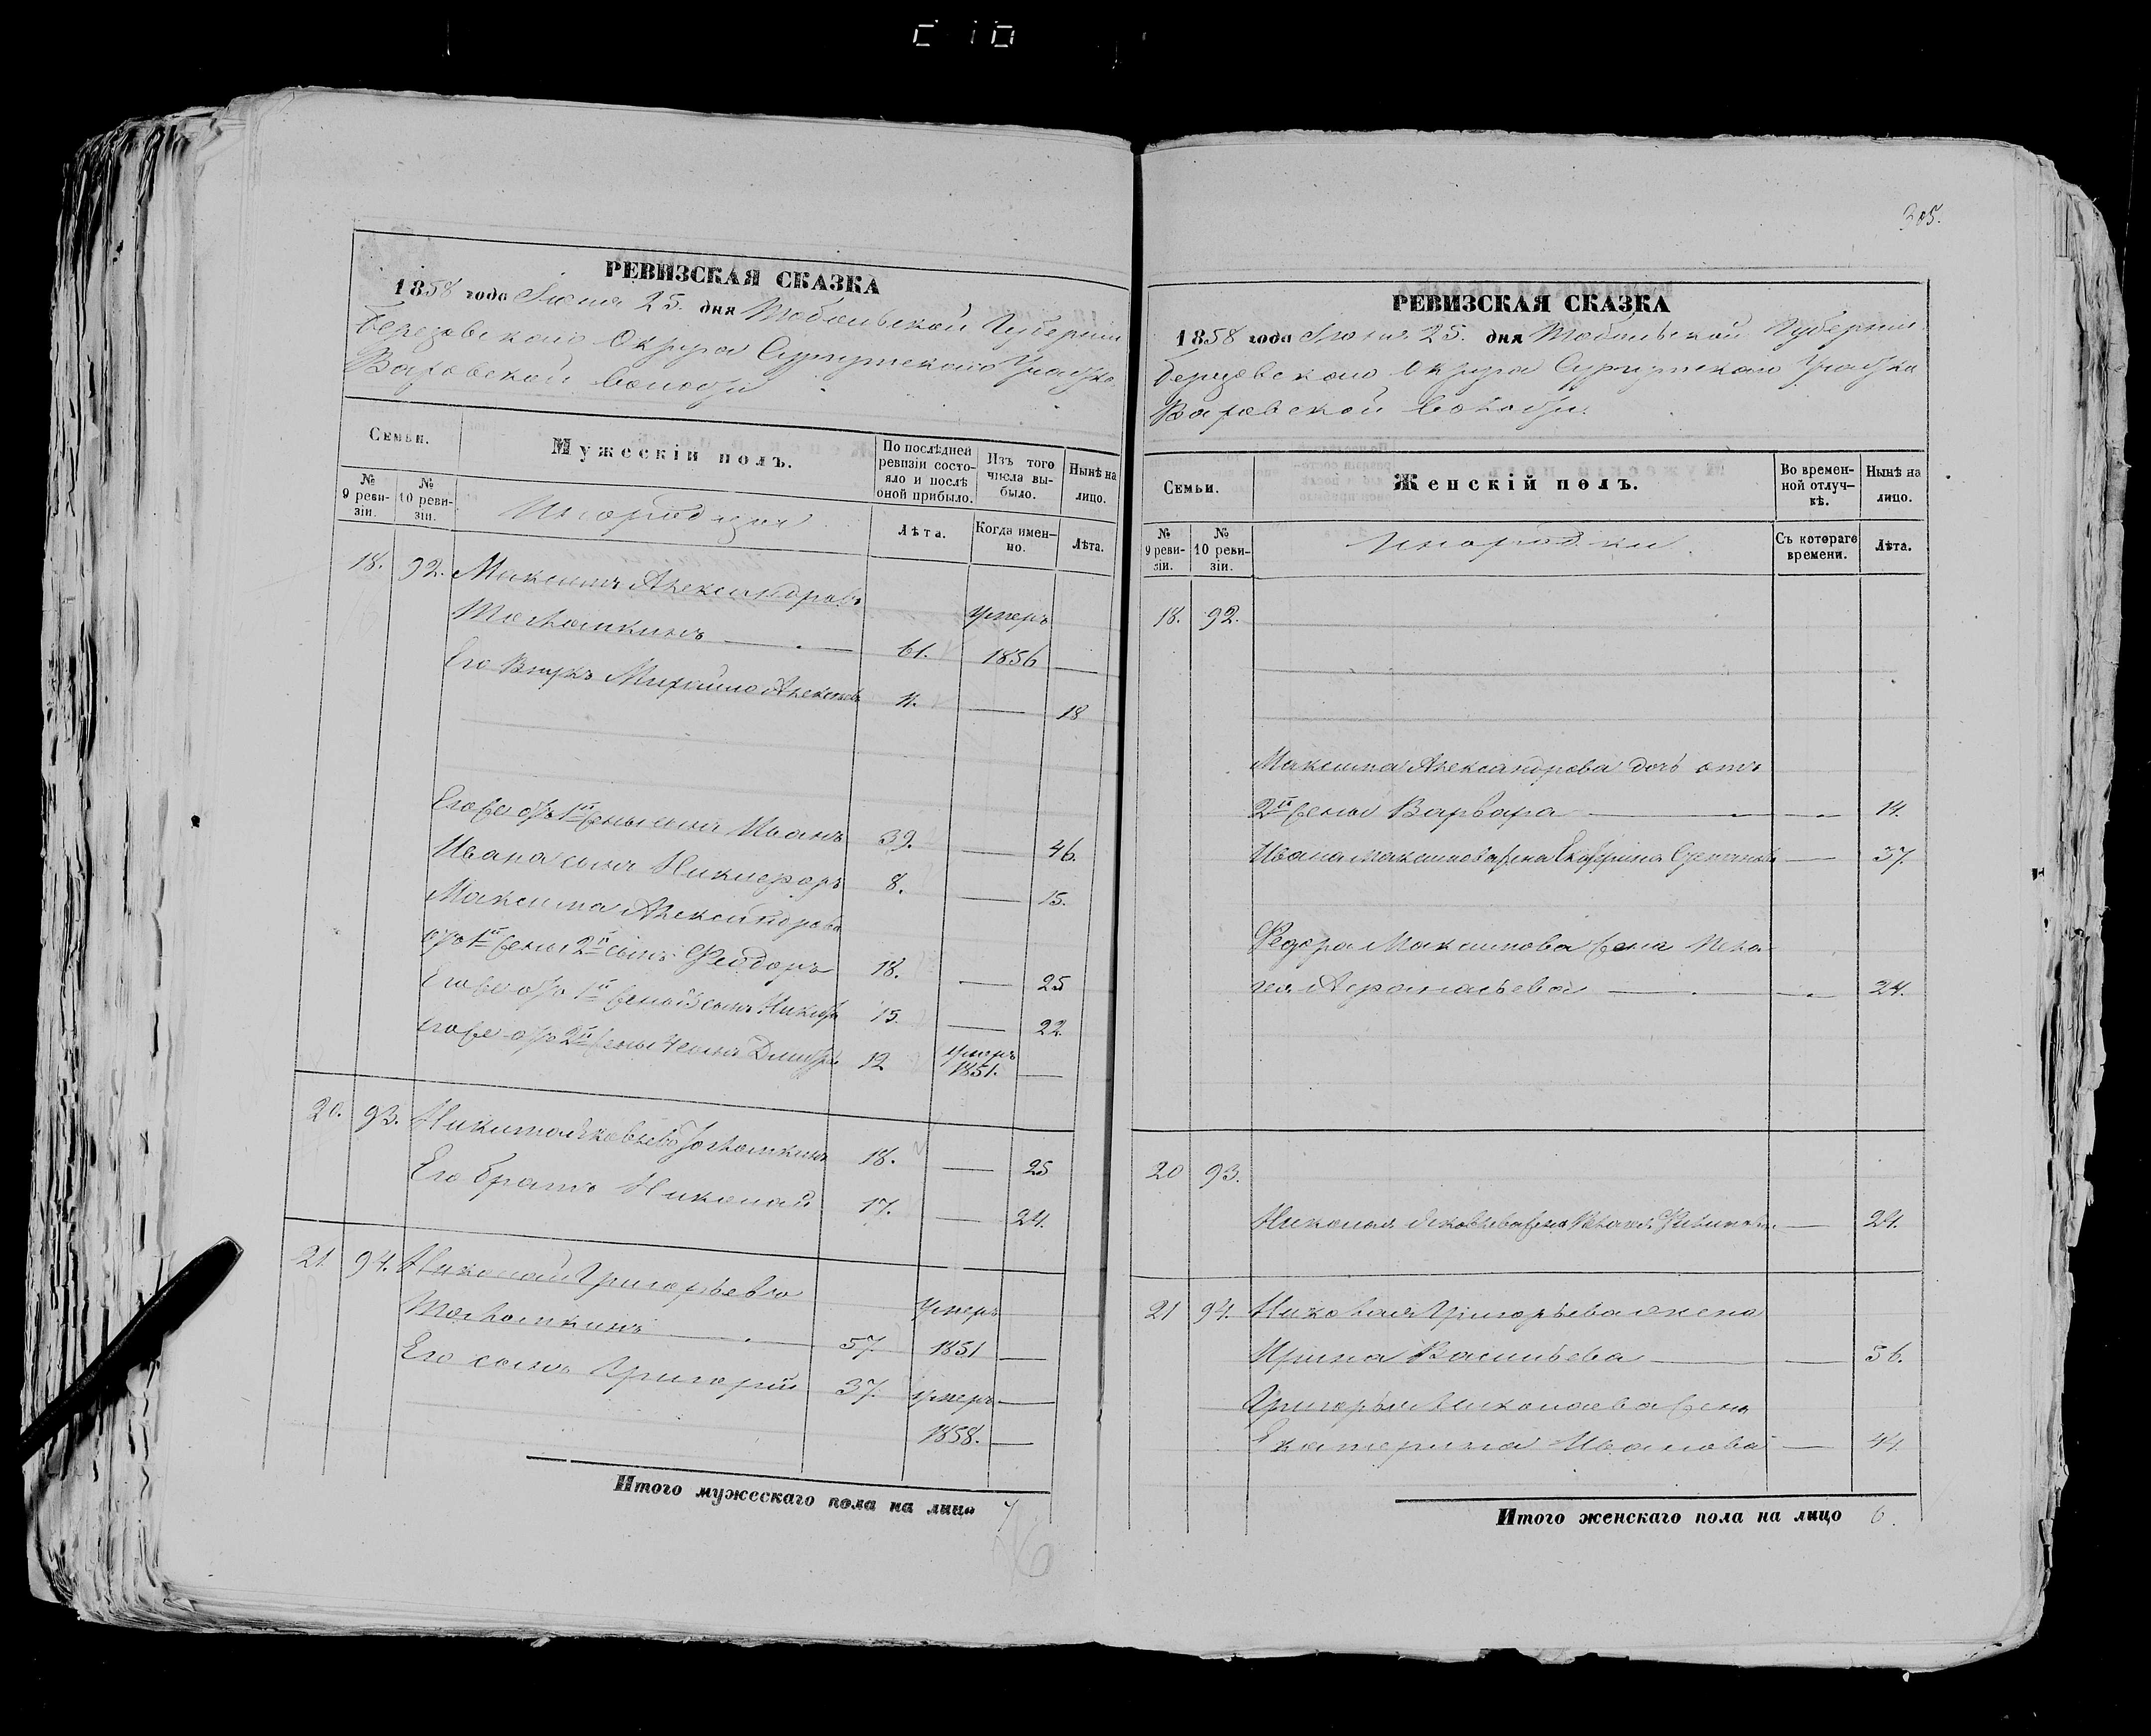 305.
РЕВИЗСКАЯ СКАЗКА
1858 года Іюня 25. дня Тобольской Губерніи
Березовскаго Округа Сургутскаго Участка
Ваховской волости
Семьи.
Мужескій полъ.
По послѣдней ревизіи состояло и послѣ оной прибыло.
Изъ того числа выбыло.
Нынѣ на лицо.
№ 9 ревизіи.
№ 10 ревизіи.
Инородцы
Лѣта.
Когда именно.
Лѣта.
18. 92. Максимъ Александровъ
умеръ
61. 1856 —
Его внукъ 11. — 18
Его же отъ 1й жены сынъ Иванъ 39. — 46.
Ивана сынъ Никифоръ 8. — 15.
Максима Александрова
отъ 1й жены 2й сынъ Феодоръ 18. — 25
Его же отъ 1й жены 3 сынъ 15. — 22
Его же отъ 2й жены 4 сынъ Дмитрій 12 умеръ 1851. —
20. 93. Никита Яковлевъ 18. — 25
Его братъ Николай 17. — 24.
21. 94. Николай Григорьевъ
умеръ
57. 1851 —
Его сынъ Григорій 37. умеръ —
1858. —
Итого мужескаго пола на лицо 7
РЕВИЗСКАЯ СКАЗКА
1858 года Іюня 25. дня Тобольской Губерніи
Березовскаго Округа Сургутскаго Участка
Ваховской волости.
Семьи.
Женскій полъ.
Во временной отлучкѣ.
Нынѣ на лицо.
№ 9 ревизіи.
№ 10 ревизіи.
Инородки.
Съ котораго времени.
Лѣта.
18. 92.
Максима Александрова дочь отъ
2й жены Варвара — — 14.
Ивана Максимова жена Екатерина Степанова — 37
Федора Максимова жена Пела-
гея Афанасьева — — 24.
20 93.
Николая Яковлева жена — 24.
21 94. Николая Григорьева жена
Ирина Васильева — — 56.
Григорья Николаева жена
Екатерина Иванова — 44.
Итого женскаго пола на лицо 6.